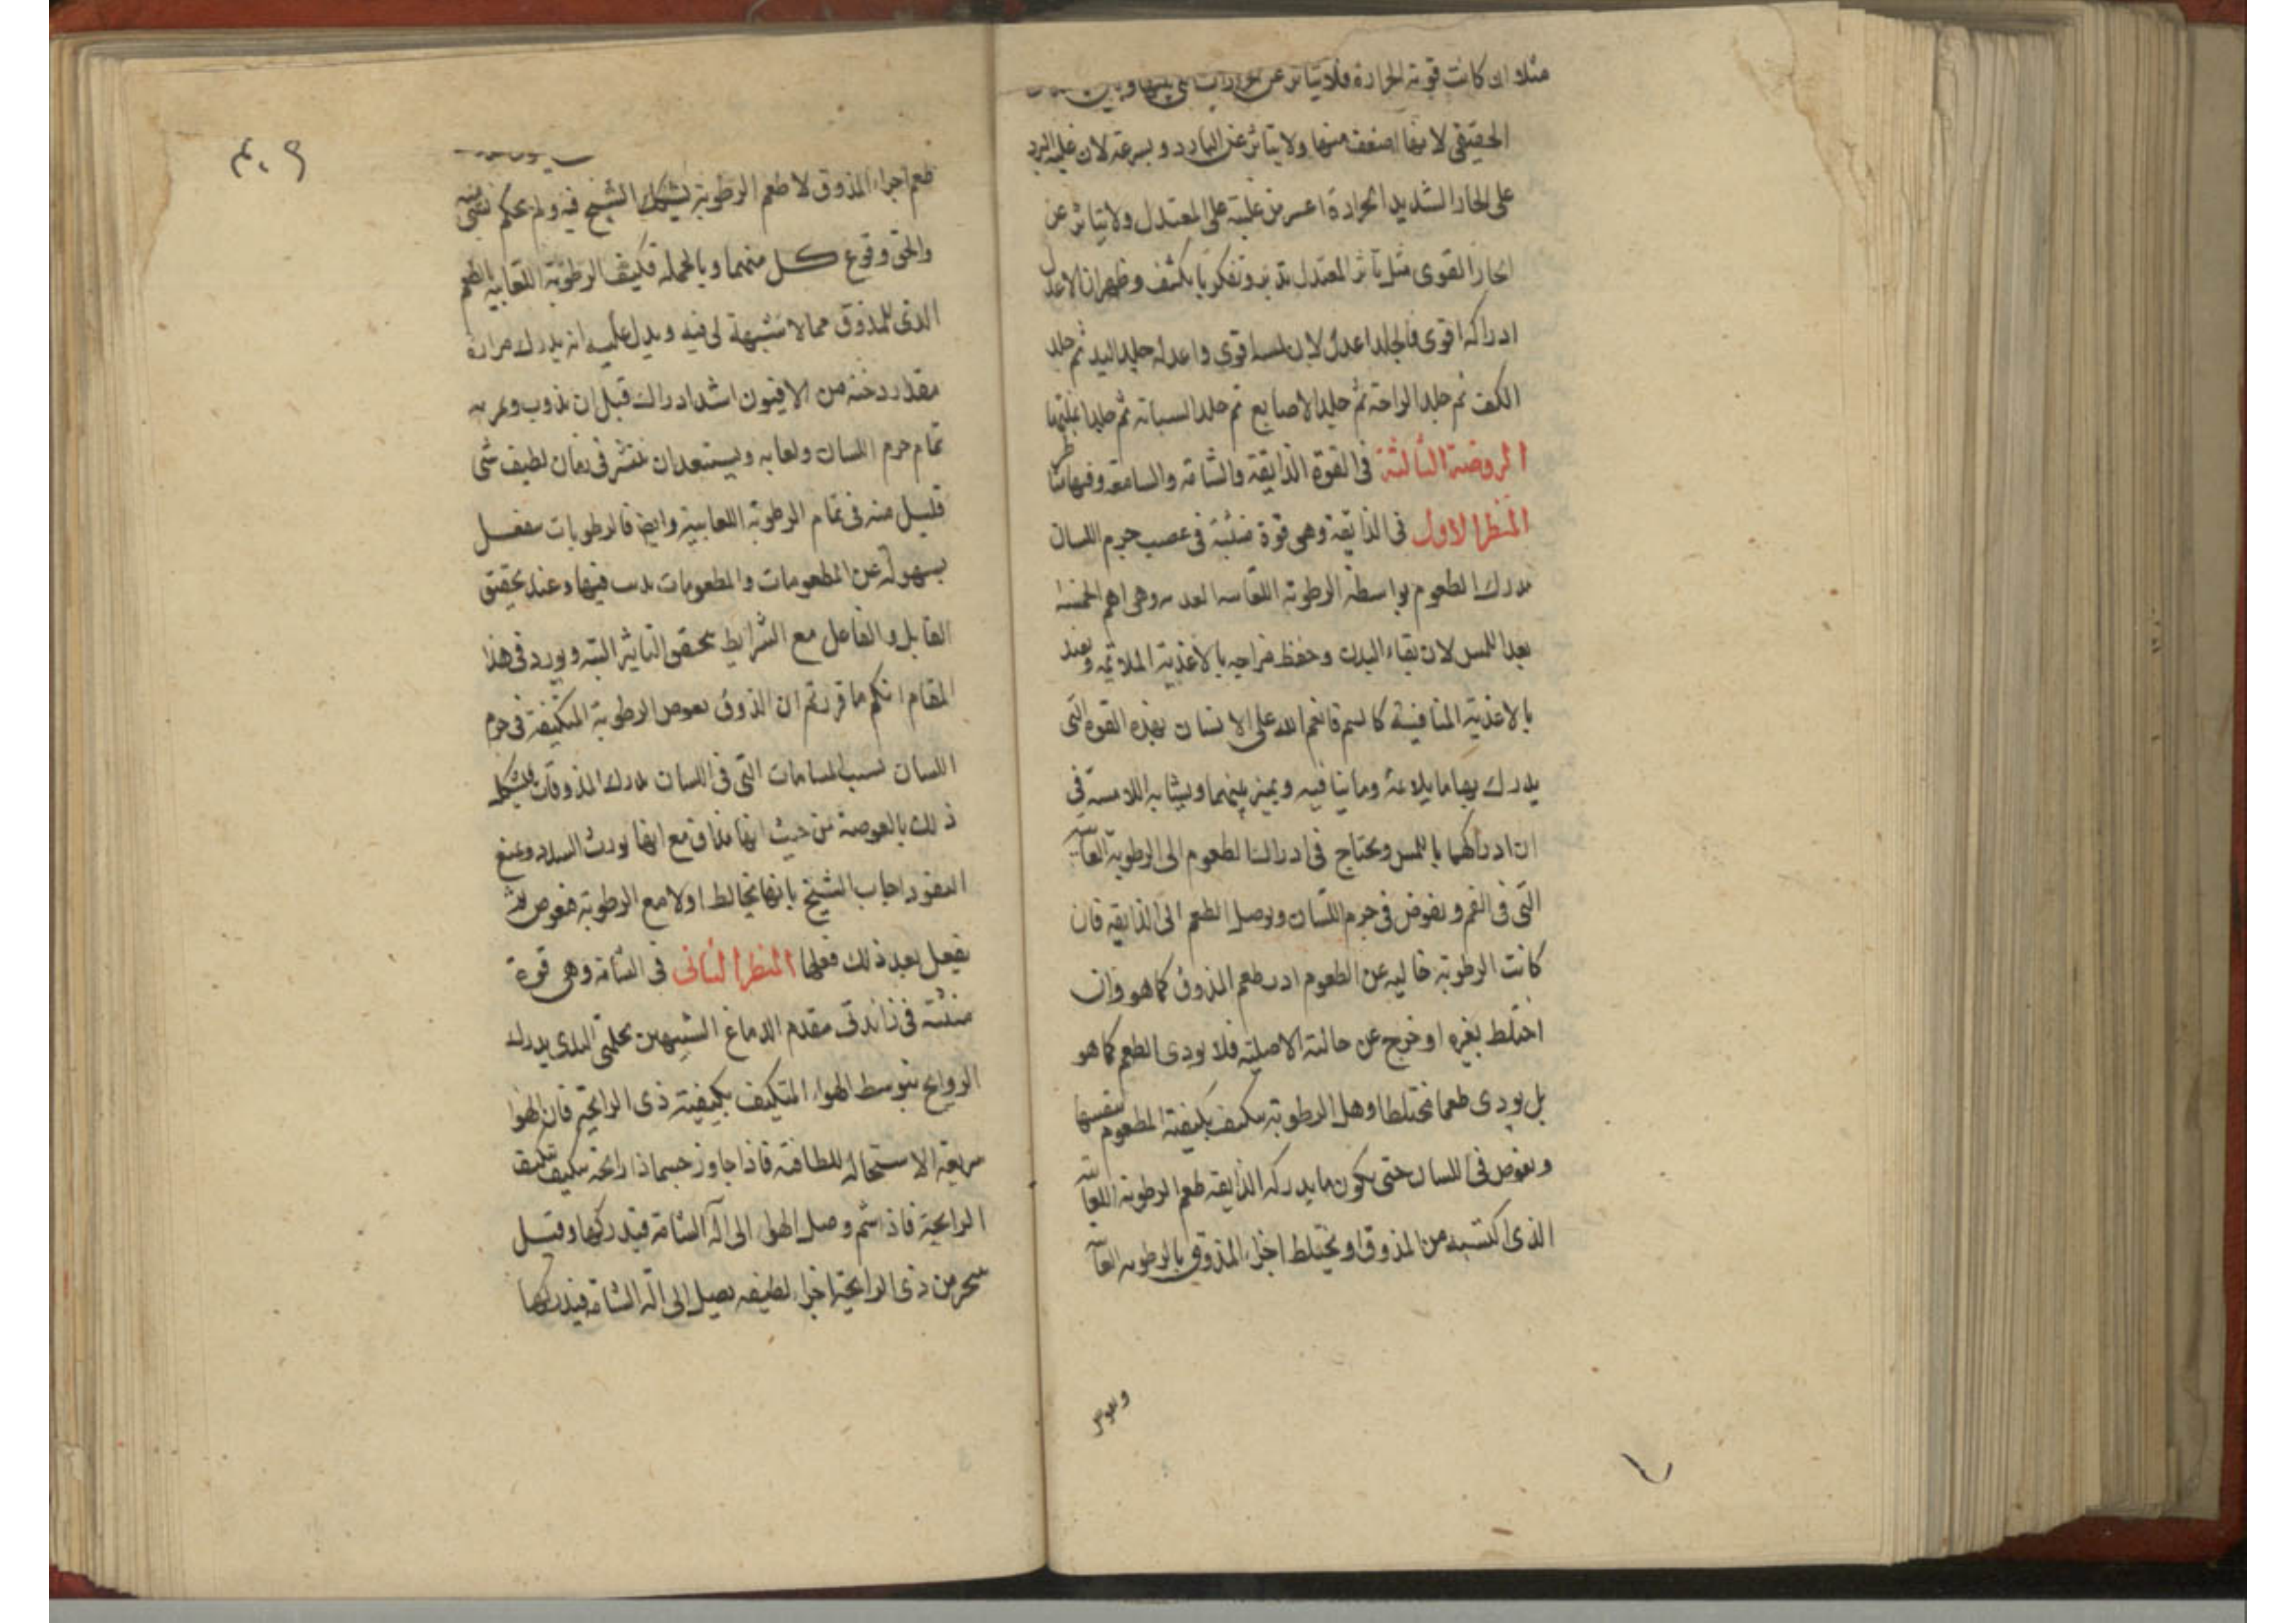 مثلا ان كانت قوية الحرارة فلا يتاثر عن
الحقيقى لانها اضعف منها ولا يتاثر عن البارد بسرعة لان غلبة البرد
على الحار الشديد الحرارة اعسر من غلبته على المعتدل ولا يتاثر عن
الحار القوى مثل تاثر المعتدل تدبر وتفكر يا يكشف وظهر ان الاعدل
ادراكه اقوى فالجلد اعدل لان لمسه اقوى واعدله جلد اليد ثم جلد
الكف ثم جلد الراحة ثم جلد الاصابع ثم جلد السبابة ثم جلد انملتها
الروضة الثالثة فى القوة الذايقة والشامة والسامعة وفيها مناظر
المنظر الاول فى الذايقة وهى قوة منبثة فى عصب جرم اللسان
تدرك الطعوم بواسطة الرطوبة اللعابية وهى اهم الخمسة
بعد اللمس لان بقاء البدن وحفظ مزاجه بالاغذية الملائمة
بالاغذية المنافية كالسم فانعم الله على الانسان بهذه القوة التى
يدرك بها ما يلائمه وما ينافيه ويميز بينهما ويشابه اللامسة فى
ان ادراكهما باللمس ويحتاج فى ادراك الطعوم الى الرطوبة اللعابية
التى فى الفم ويغوص فى جرم اللسان ويوصل الطعم الى الذايقة فان
كانت الرطوبة خالية عن الطعوم ادرك طعم المذوق كما هو وان
اختلط بغيره او خرج عن حالته الاصلية فلا يودى الطعم كما هو
بل يودى طعما مختلطا وهل الرطوبة تتكيف بكيفية المطعوم بنفسها
ويغوص فى اللسان حتى يكون ما يدركه الذايقة طعم الرطوبة اللعابية
الذى اكتسبه من المذوق او يختلط اجزاء المذوق بالرطوبة اللعابية
ويغوص
٣٠٩
طعم اجزاء المذوق لا طعم الرطوبة يشك الشيخ فيه ولم يحكم بشىء منه
والحق وقوع كل منهما وبالجملة فكيف الرطوبة اللعابية بالطعم
الذى للمذوق مما لا شبهة لى فيه ويدل عليه انه يدرك مرارة
مقدار دخنة من الافيون اشد ادراك قبل ان يذوب ويمر به
تمام جرم اللسان ولعابه ويستبعد ان ينتشر فى زمان لطيف شى
قليل منه فى تمام الرطوبة اللعابية وايضا فالرطوبات تنفعل
بسهولة عن المطعومات والمطعومات فيها وعند تحقق
القابل والفاعل مع الشرايط يتحقق التاثير البتة ويورد فى هذا
المقام انكم ما قررتم ان الذوق بغوص الرطوبة المتكيفة فى جرم
اللسان بسبب المسامات التى فى اللسان يدرك المذوقات
ذلك بالعوصة من حيث انها مذاق مع انها تورث السدد وتمنع
النفوذ اجاب الشيخ بانها تخالط اولا مع الرطوبة فتغوص ثم
يفعل بعد ذلك فعلها المنظر الثانى فى الشامة وهى قوة
منبثة فى زائدتى مقدم الدماغ الشبيهتين بحلمتى الثدى يدرك
الروايح بتوسط الهواء المتكيف بكيفية ذى الرايحة فان الهوا
سريعة الاستحالة للطافته فاذا جاوز جسما ذا رايحة يتكيف بكيف
الرايحة فاذا شم وصل الهوا الى آلة الشامة فيدركها وقيل
يتبخر من ذى الرايحة اجزاء لطيفة يصل الى آلة الشامة فيدركها